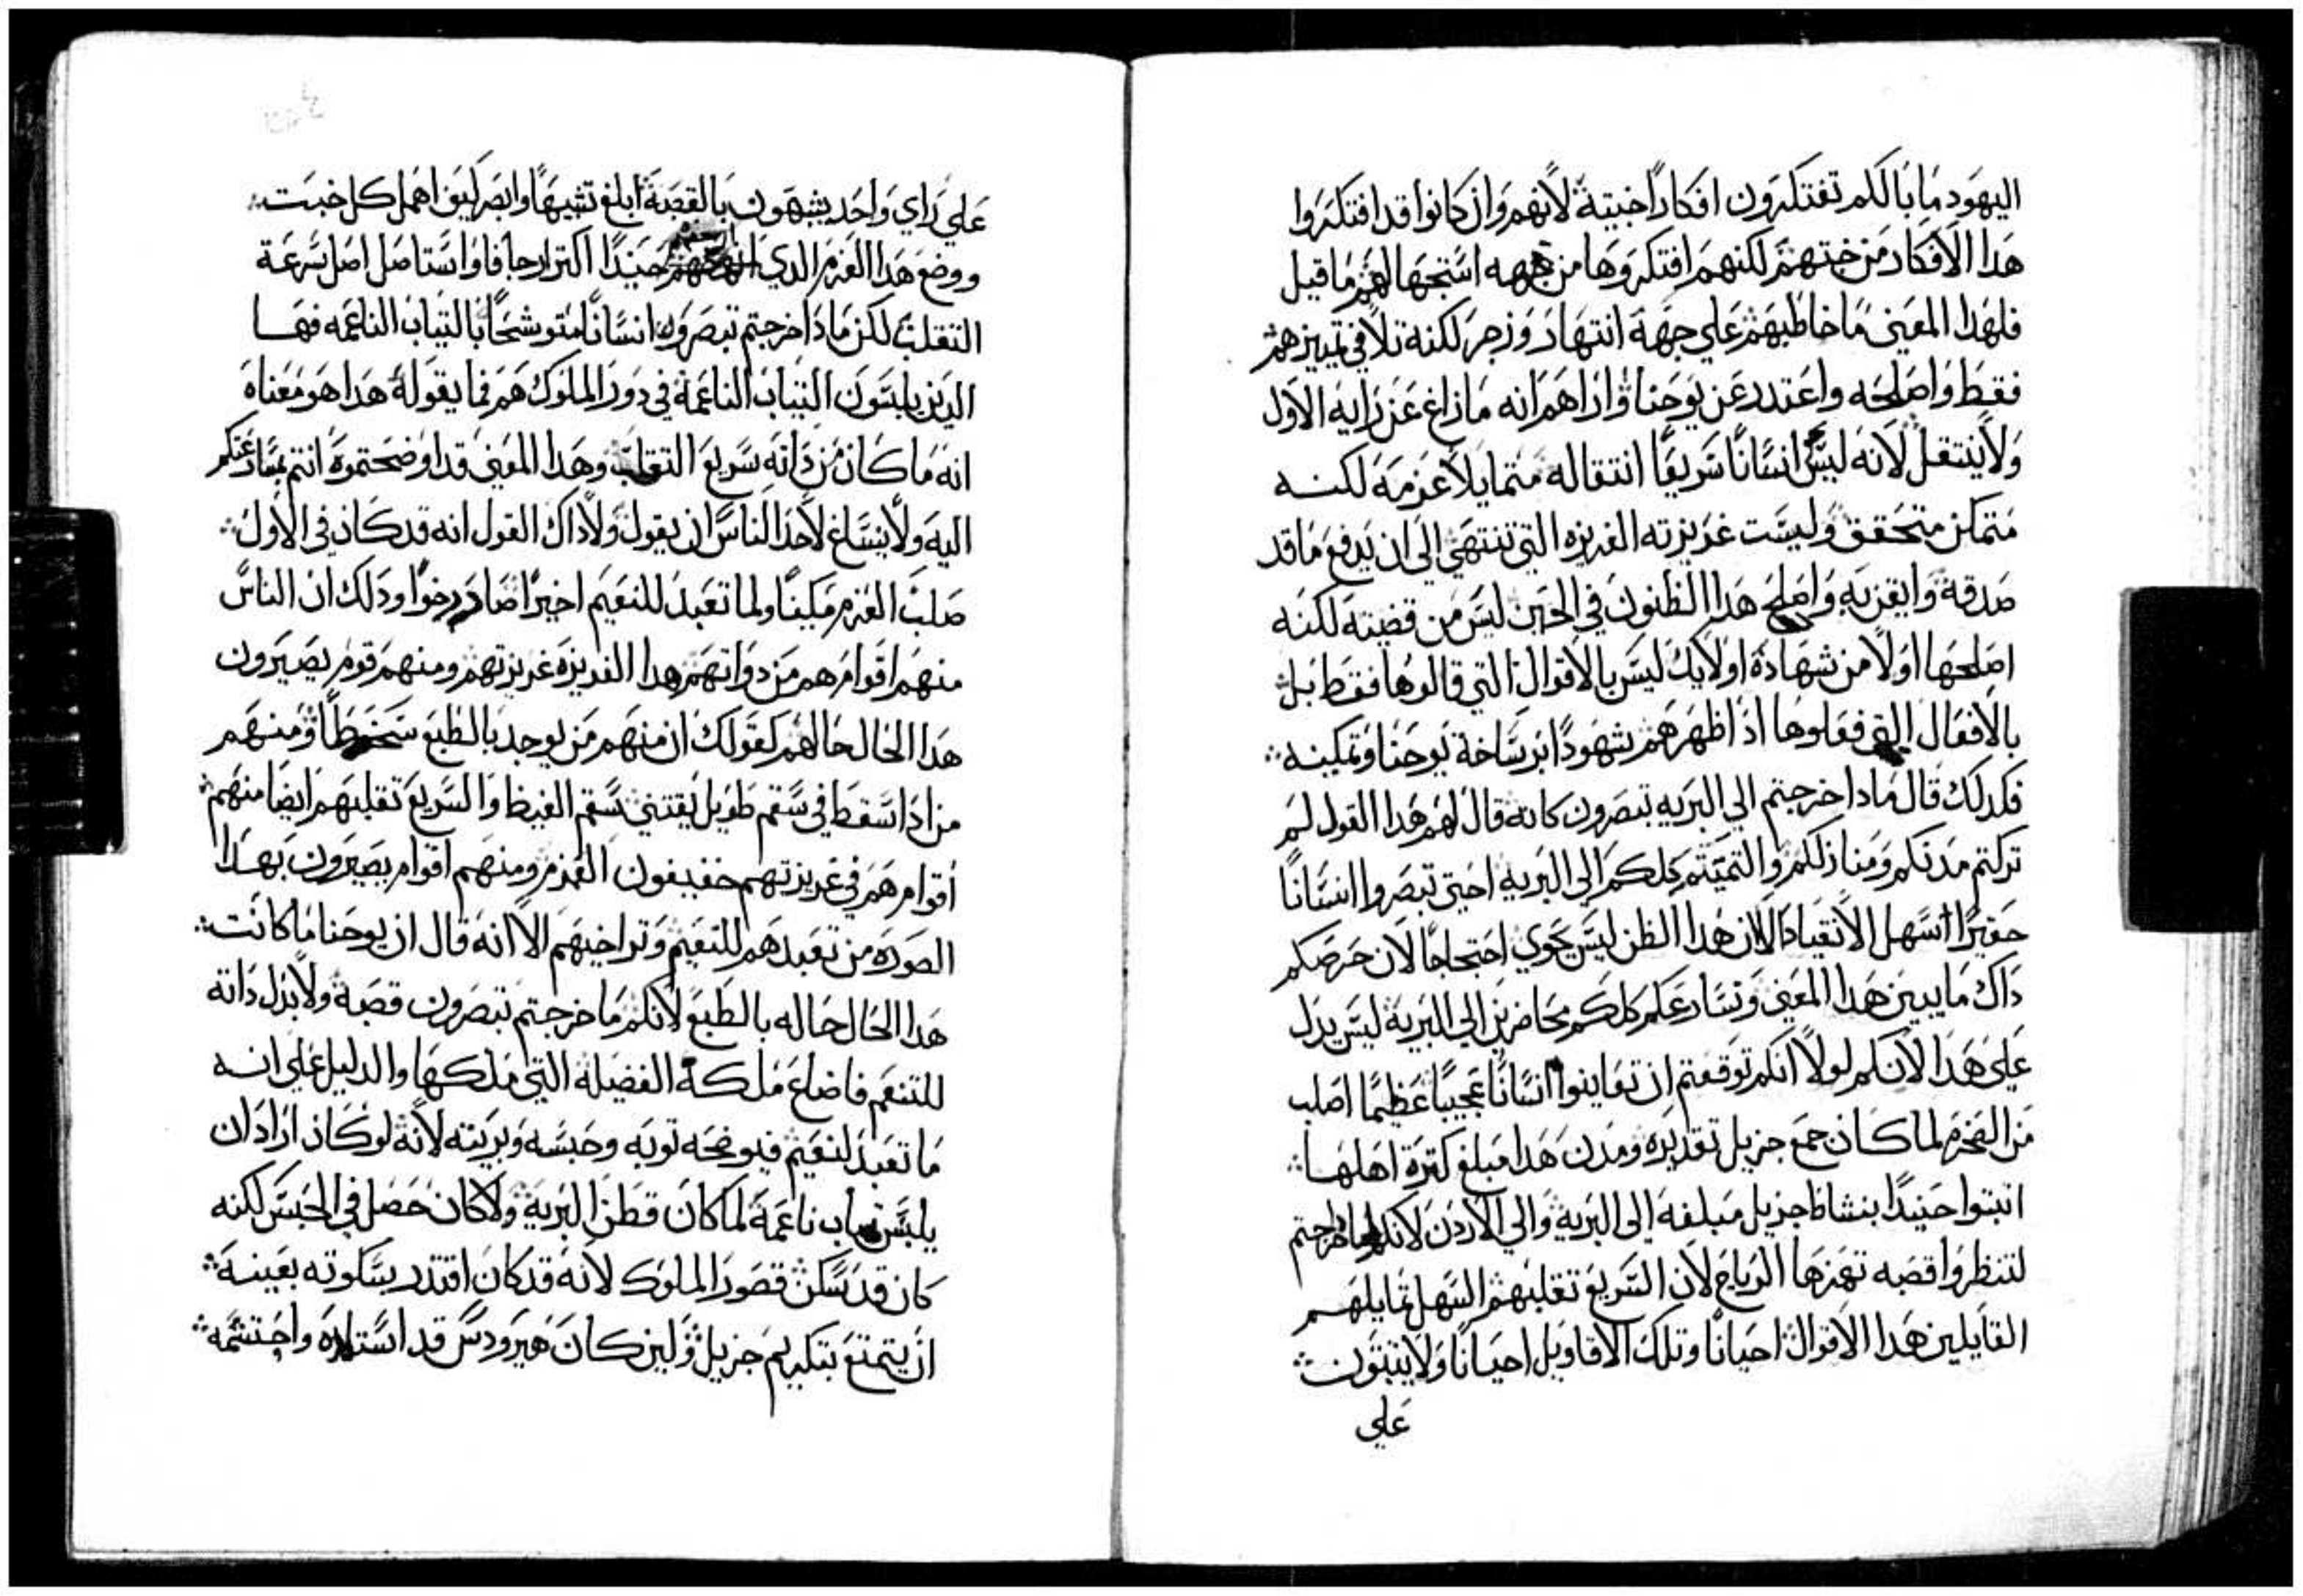 اليهود ما بالكم تفتكرون افكارًا خبيتة لانهم وان كانوا قد افتكروا
هدا الافكار من ختهم لكنهم افتكروها من جهه استجها لهم ما قيل
فلهدا المعنى ما خاطبهم علي جهة انتهار وزجر لكنه تلافى تمييزهم
فقط واصلحه واعتدر عن يوحنا واراهم انه ما زاغ عن رايه الاول
ولا ينتقل لانه ليس انسانًا سريعًا انتقاله متمايلاً عزمه لكنه
متمكن متحقق وليست غريزته الغريزه التي تنتهي الى ان يدفع ما قد
صدقة وايقن به واصلح هدا الظنون في الحين ليس من قضيته لكنه
اصلحها اولاً من شهادة اولايك ليس بالاقوال التي قالوها فقط بل
بالافعال التي فعلوها اد اظهرهم شهودًا برساخة يوحنا وتمكينه
فكدلك قال مادا خرجتم الي البريه تبصرون كانه قال لهم هدا القول لم
تركتم مدنكم ومنازلكم والتميتم كلكم الي البرية احتى تبصروا انسانًا
حقيرًا اسهل الانقياد الا ان هدا الظن ليس يحوي احتجاجًا لان حرصكم
داك ما يبين هدا المعنى وتسارعكم كلكم محاضرين الي البرية ليس يدل
علي هدا لانكم لولا انكم توقعتم ان تعاينوا انسانًا عجيبًا عظيمًا اصلب
من الصخر لما كان جمع جزيل تقديره ومدن هدا مبلغ كترة اهلها
انبتوا حنيدًا بنشاط جزيل مبلغه الى البرية والي الاردن لانكم ما خرجتم
لتنظروا قصبه تهزها الرياح لان السريع تقلبهم السهل تمايلهم
القايلين هدا الاقوال احيانًا وتلك الاقاويل احيانًا ولا يتبتون
علي
علي راي واحد يشبهون بالقصبة ابلغ تشبيهًا وابصر كيف اهمل كل خبت
ووضع هدا العزم الدي حنيدًا اكتر ارجافا واستاصل اصل سرعة
التقلب لكن مادا خرجتم تبصرون انسانًا متوشحًا بالتياب الناعمه فها
الدين يلبسون التياب الناعمة في دور الملوك هم فما يقوله هدا هو معناه
انه ما كان من داته سريع التقلب وهدا المعنى قد اوضحتموه انتم بتسارعكم
اليه ولا ينساغ لاحد الناس ان يقول ولا داك القول انه قد كان في الاول
صلب العزم مكينًا ولما تعبد للنعيم اخيرًا صار رخوًا ودلك ان الناس
منهم اقوام هم من دواتهم هدا الغريزه غريزتهم ومنهم قوم يصيرون
هدا الحال حالهم كقولك ان منهم من يوجد بالطبع سخوطًا ومنهم
من ادا سقط في سقم طويل يقتني سقم الغيظ والسريع تقلبهم ايضا منهم
اقوام هم في غريزتهم خفيفون العزم ومنهم اقوام يصيرون بهدا
الصوره من تعبدهم للنعيم وتراخيهم الا انه قال ان يوحنا ما كانت
هدا الحال حاله بالطبع لانكم ما خرجتم تبصرون قصبة ولا بدل داته
للتنعم فاضاع ملكة الفضيلة التي ملكها والدليل علي انه
ما تعبد لنعيم فيوضحه توبه وحبسه وبريته لانه لو كان اراد ان
يلبس تياب ناعمة لما كان قطن البرية ولا كان حصل في الحبس لكنه
كان قد سكن قصور الملوك لانه قد كان اقتدر بسكوته بعينه
ان يتمتع بتكريم جزيل ولين كان هيرودس قد استلاده واحتشمه